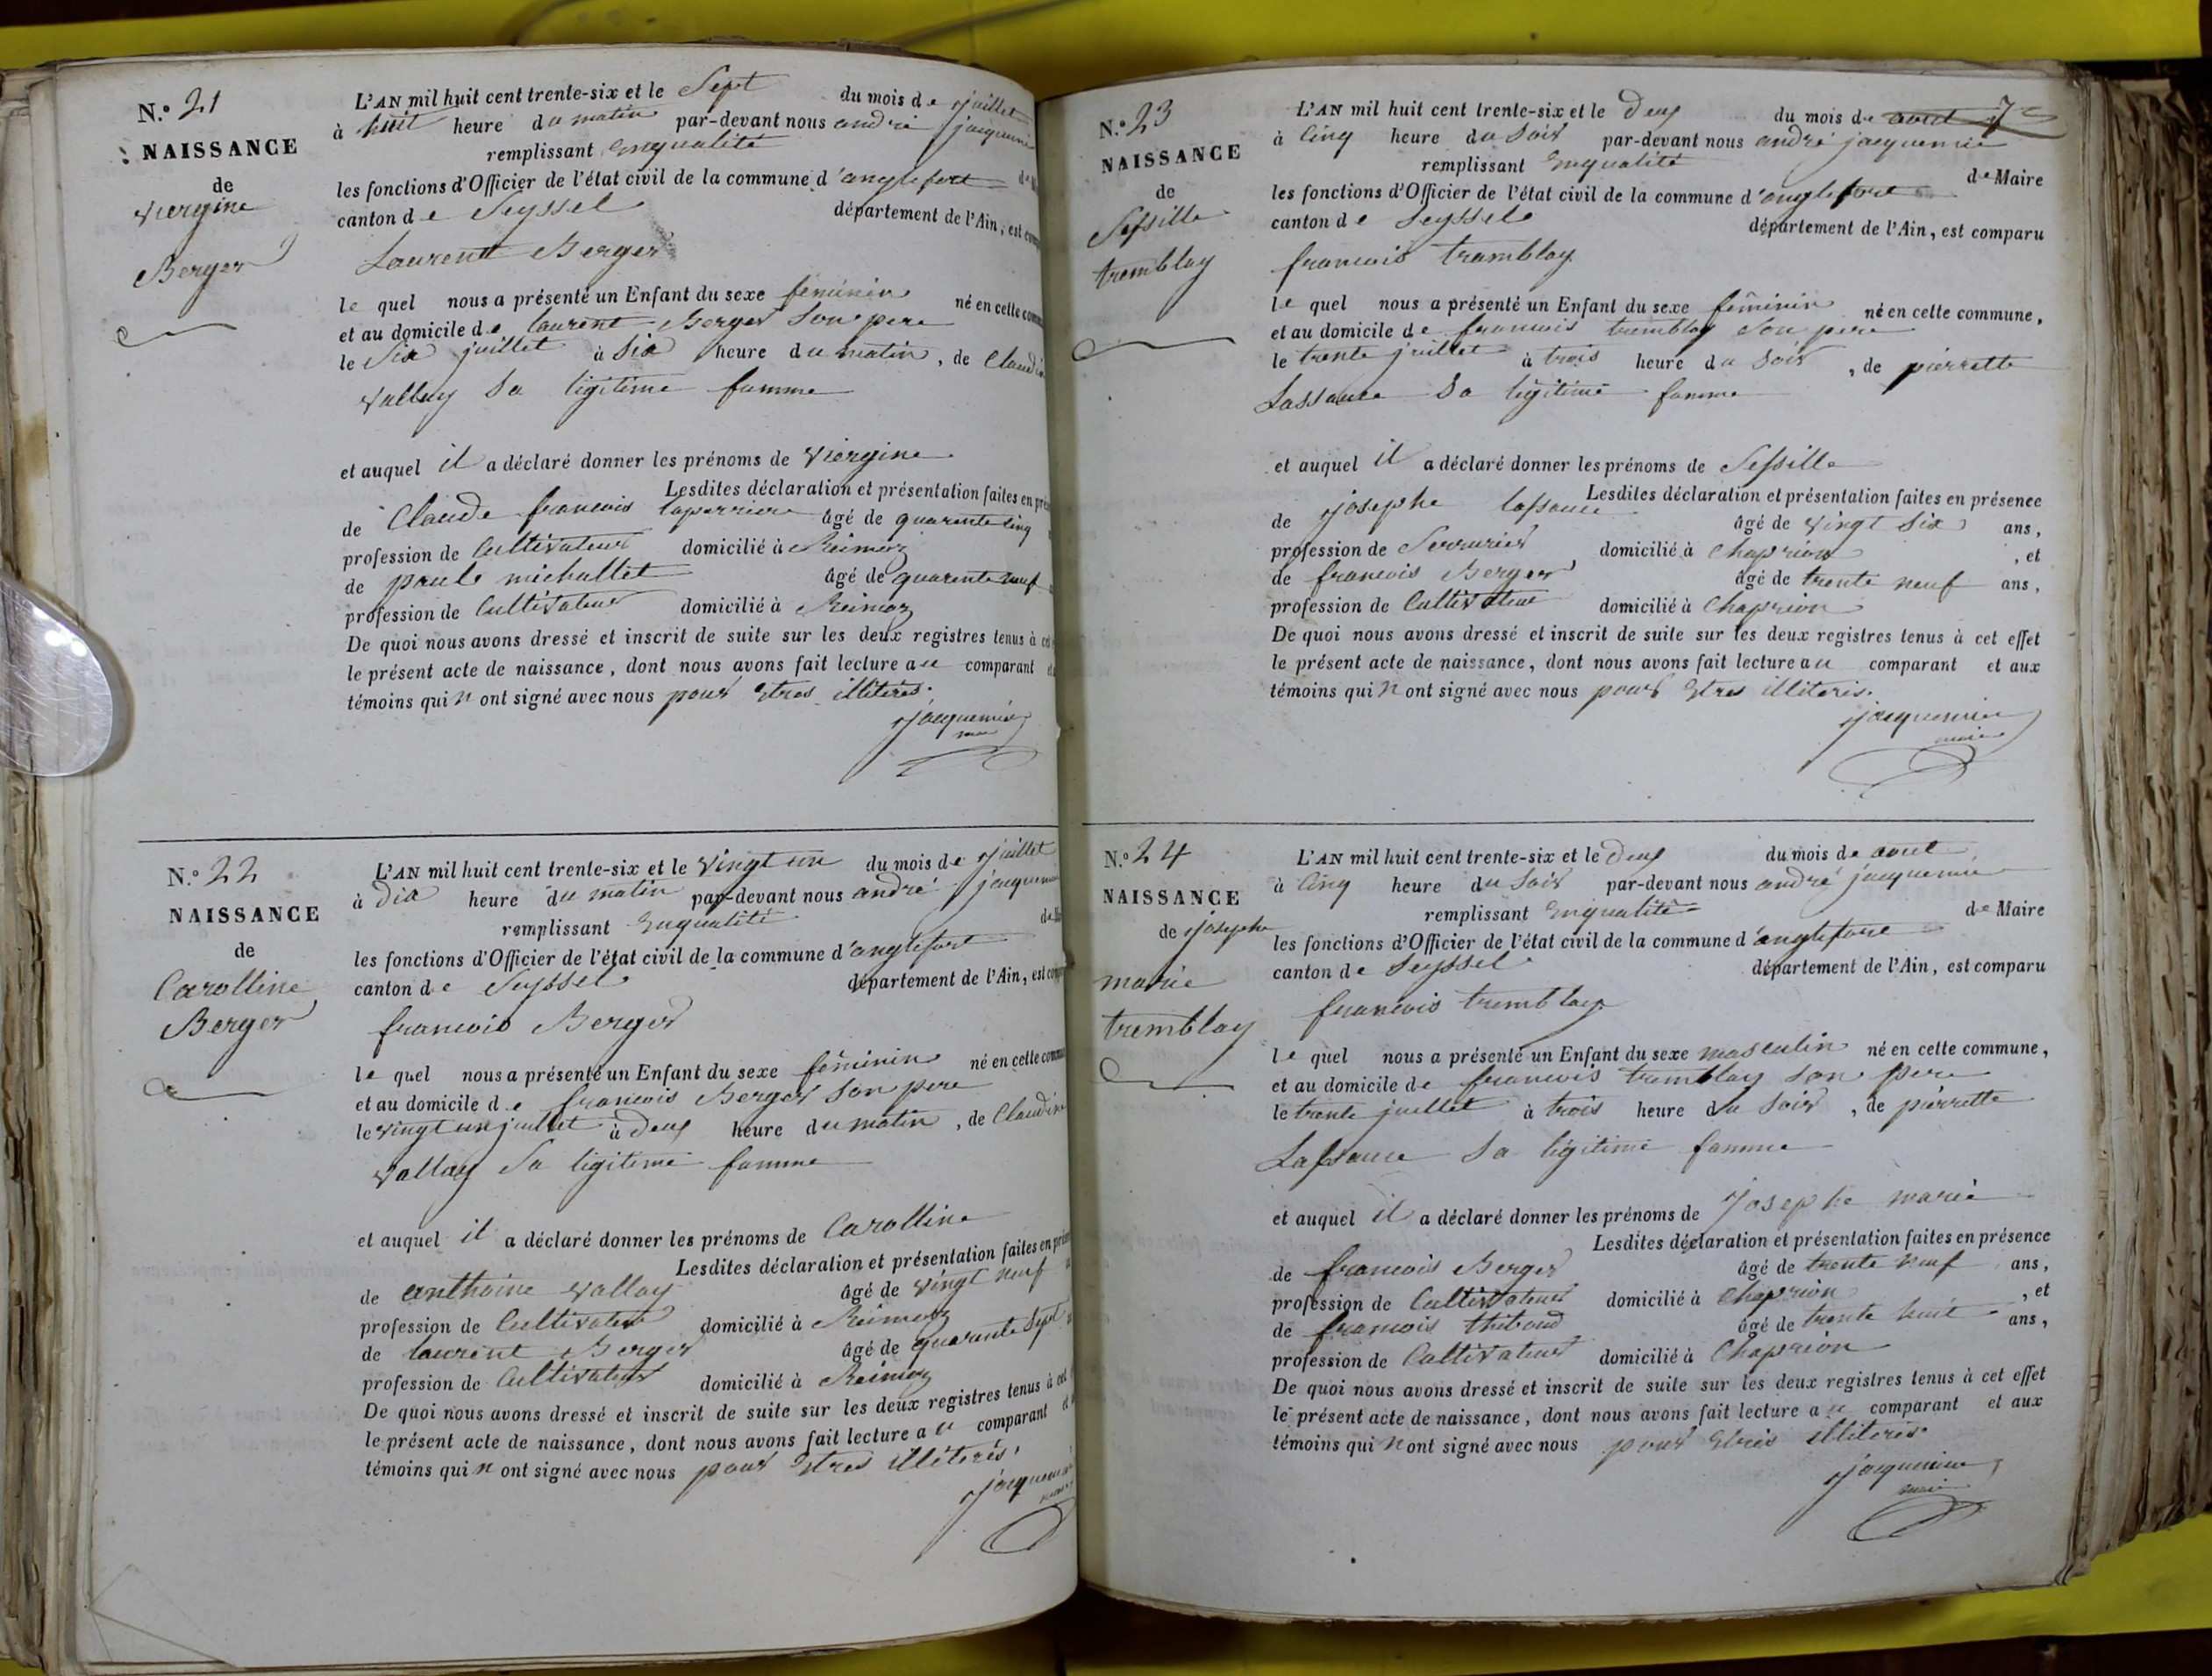 N.° 21
NAISSANCE
de
viergine
Berger
L'AN mil huit cent trente-six et le Sept du mois de juillet
à huit heure du matin par-devant nous andré jacquemin
remplissant enqualité
les fonctions d'Officier de l'état civil de la commune d'anglefort de
canton de Seyssel département de l'Ain, est
Laurent Berger
le quel nous a présenté un Enfant du sexe féminin né en cette
et au domicile de laurent Berger son pere
le Six juillet à Six heure du matin, de
vallay Sa ligitime famme
et auquel il a déclaré donner les prénoms de viergine
Lesdites déclaration et présentation faites en
de Claude francois laperriere âgé de quarente cinq
profession de Cultivateur domicilié à Reimoz
de paule michallet âgé de quarente neuf
profession de Cultivateur domicilié à Reimoz
De quoi nous avons dressé et inscrit de suite sur les deux registres tenus à
le présent acte de naissance, dont nous avons fait lecture au comparant
témoins qui n ont signé avec nous pour Etres illiteres.
jacquemin
N.° 22
NAISSANCE
de
Carolline
Berger
L'AN mil huit cent trente-six et le vingt un du mois de juillet
à dix heure du matin par-devant nous andré
remplissant Enqualité
les fonctions d'Officier de l'état civil de la commune d'anglefort
canton de Seyssel département de l'Ain, est
francois Berger
le quel nous a présenté un Enfant du sexe féminin né en cette
et au domicile de francois Berger son pere
le vingt un juillet à deux heure du matin, de
vallay Sa ligitime famme
et auquel il a déclaré donner les prénoms de Carolline
Lesdites déclaration et présentation faites en
de anthoine vallay âgé de vingt neuf
profession de Cultivateur domicilié à Reimoz
de laurent Berger âgé de quarente Sept
profession de Cultivateur domicilié à Reimoz
De quoi nous avons dressé et inscrit de suite sur les deux registres tenus à
le présent acte de naissance, dont nous avons fait lecture au comparant
témoins qui n ont signé avec nous pour Etres illiterés.
N.° 23
NAISSANCE
de
Sessille
tremblay
L'AN mil huit cent trente-six et le deux du mois de aout
à Cinq heure du Soir par-devant nous andré jacquemin
remplissant Enqualité de Maire
les fonctions d'Officier de l'état civil de la commune d'anglefort
canton de Seyssel département de l'Ain, est comparu
francois tramblay
le quel nous a présenté un Enfant du sexe féminin né en cette commune,
et au domicile de francois tremblay son pere
le trente juillet à trois heure du Soir, de pierrette
Lassause Sa ligitime famme
et auquel il a déclaré donner les prénoms de Sessille
Lesdites déclaration et présentation faites en présence
de josephe lassause âgé de vingt Six ans,
profession de Serrurier domicilié à Chaprion, et
de francois Berger âgé de trente neuf ans,
profession de Cultivateur domicilié à Chaprion
De quoi nous avons dressé et inscrit de suite sur les deux registres tenus à cet effet
le présent acte de naissance, dont nous avons fait lecture au comparant et aux
témoins qui n ont signé avec nous pour Etres illiteris.
jacquemin
maire
N.° 24
NAISSANCE
de josephe
marie
tremblay
L'AN mil huit cent trente-six et le deux du mois de aout
à Cinq heure du Soir par-devant nous andré jacquemin
remplissant Enqualité de Maire
les fonctions d'Officier de l'état civil de la commune d'anglefort
canton de Seyssel département de l'Ain, est comparu
francois tremblay
le quel nous a présenté un Enfant du sexe masculin né en cette commune,
et au domicile de francois tremblay son pere
le trente juillet à trois heure du Soir, de pierrette
Lassause Sa ligitime famme
et auquel il a déclaré donner les prénoms de josephe marie
Lesdites déclaration et présentation faites en présence
de francois Berger âgé de trente neuf ans,
profession de Cultivateur domicilié à Chaprion, et
de francois thiboud âgé de trente huit ans,
profession de Cultivateur domicilié à Chaprion
De quoi nous avons dressé et inscrit de suite sur les deux registres tenus à cet effet
le présent acte de naissance, dont nous avons fait lecture au comparant et aux
témoins qui n ont signé avec nous pour Etres illiteris.
jacquemin
maire